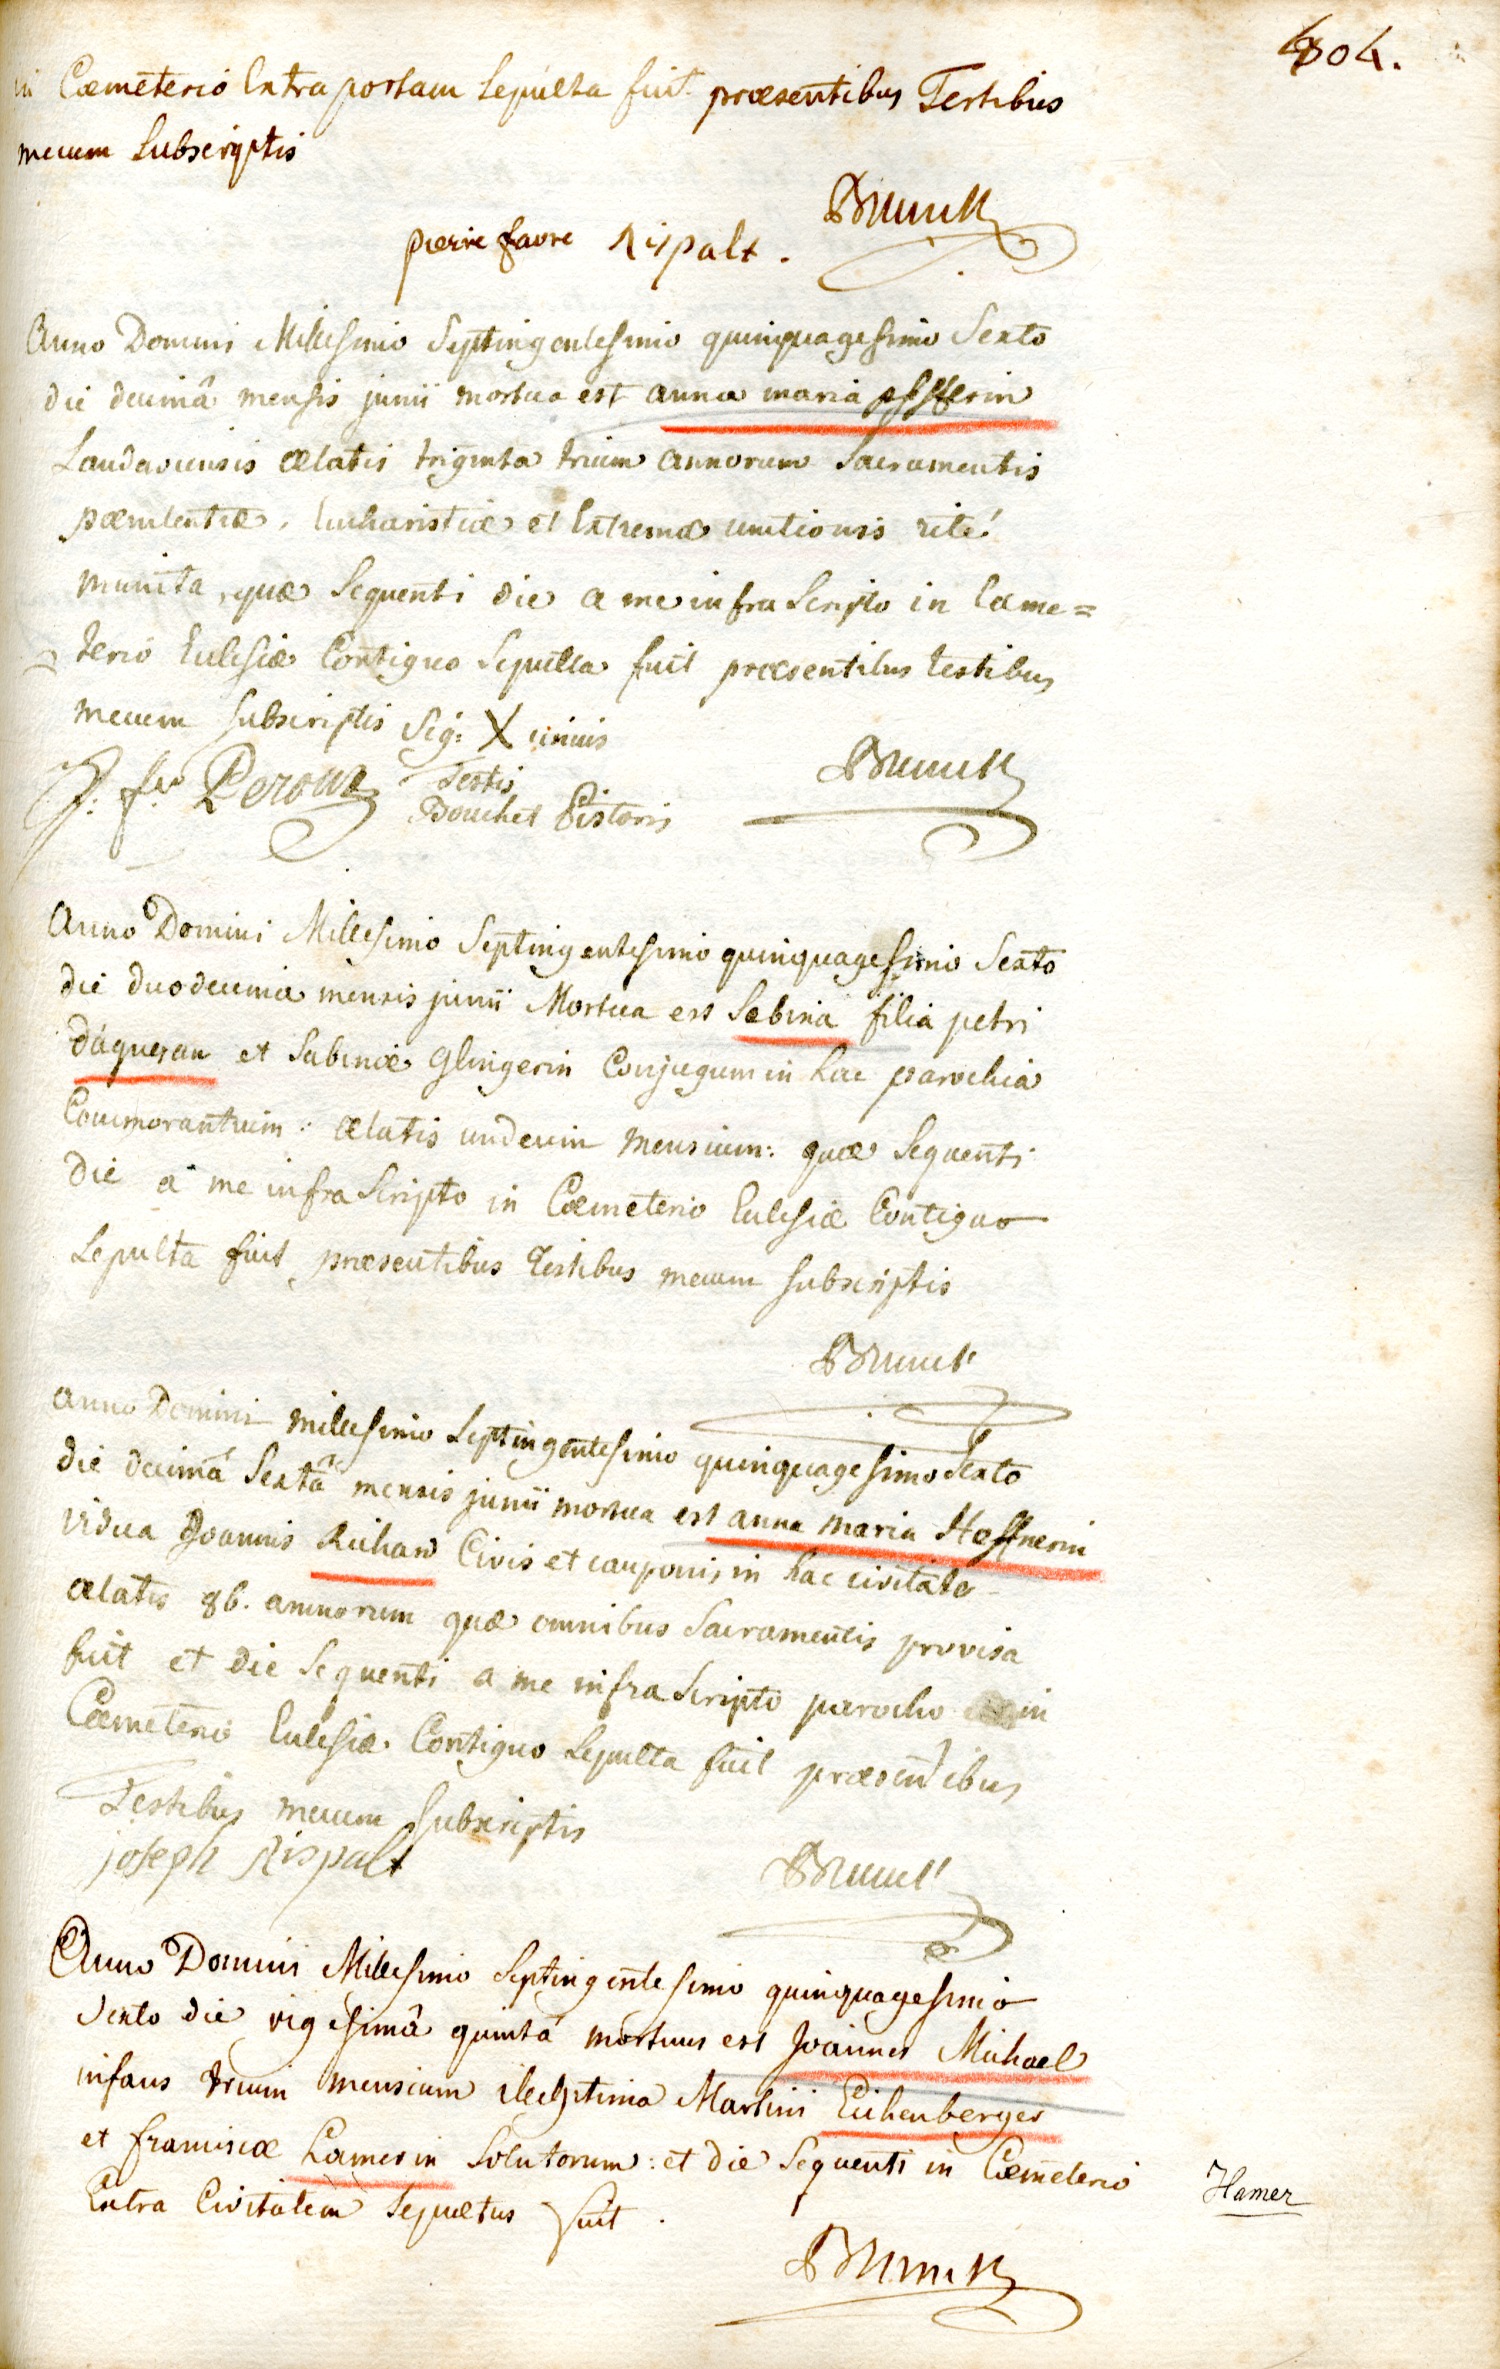 404.
in Cœmeterio Extra portam Sepulta fuit præsentibus Testibus
mecum Subscriptis
Brunck
pierre favre Rispalt.
Anno Domini Millesimo Septingentesimo quinquagesimo Sexto
die decimâ mensis junii mortua est anna maria
Landaviensis ætatis triginta trium annorum Sacramentis
pœnitentiæ, Eucharistiæ et Extremæ unctionis rité
munita, quæ Sequenti die a me infra Scripto in Cæme=
terio Eclesiæ Contiguo Sepulta fuit præsentibus testibus
mecum Subscriptis Sig: X unius
Testis
Brunck
Douchet Pistoris
Anno Domini Millesimo Septingentesimo quinquagesimo Sexto
die duodecima mensis junii Mortua est Sabina filia petri
daqueran et Sabinæ Glingerin Conjugum in hac parochia
Commorantium: ætatis undecim mensium: quæ Sequenti
die a me infra Scripto in Cœmeterio Eclesiæ Contiguo
Sepulta fuit præsentibus Testibus mecum Subscriptis
Brunck
anno Domini millesimo Septingentesimo quinquagesimo Sexto
die decimâ Sextâ mensis junii mortua est anna maria Hoffnerin
vidua Joannis Richard Civis et cauponis in hac civitate
ætatis 86. annorum quæ omnibus Sacramentis provisa
fuit et die Sequenti a me infra Scripto parocho in
Cœmeterio Eclesiæ Contiguo Sepulta fuit præsentibus
Testibus mecum Subscriptis
joseph Rispalt
Brunck
Anno Domini Millesimo Septingentesimo quinquagesimo
Sexto die vigesimâ quintâ mortuus est Joannes Michael
infans trium mensium Martini Eichenberger
et franciscæ Hamerin Solutorum: et die Sequenti in Cœmeterio
Hamer
Extra Civitatem Sepultus fuit.
Brunck